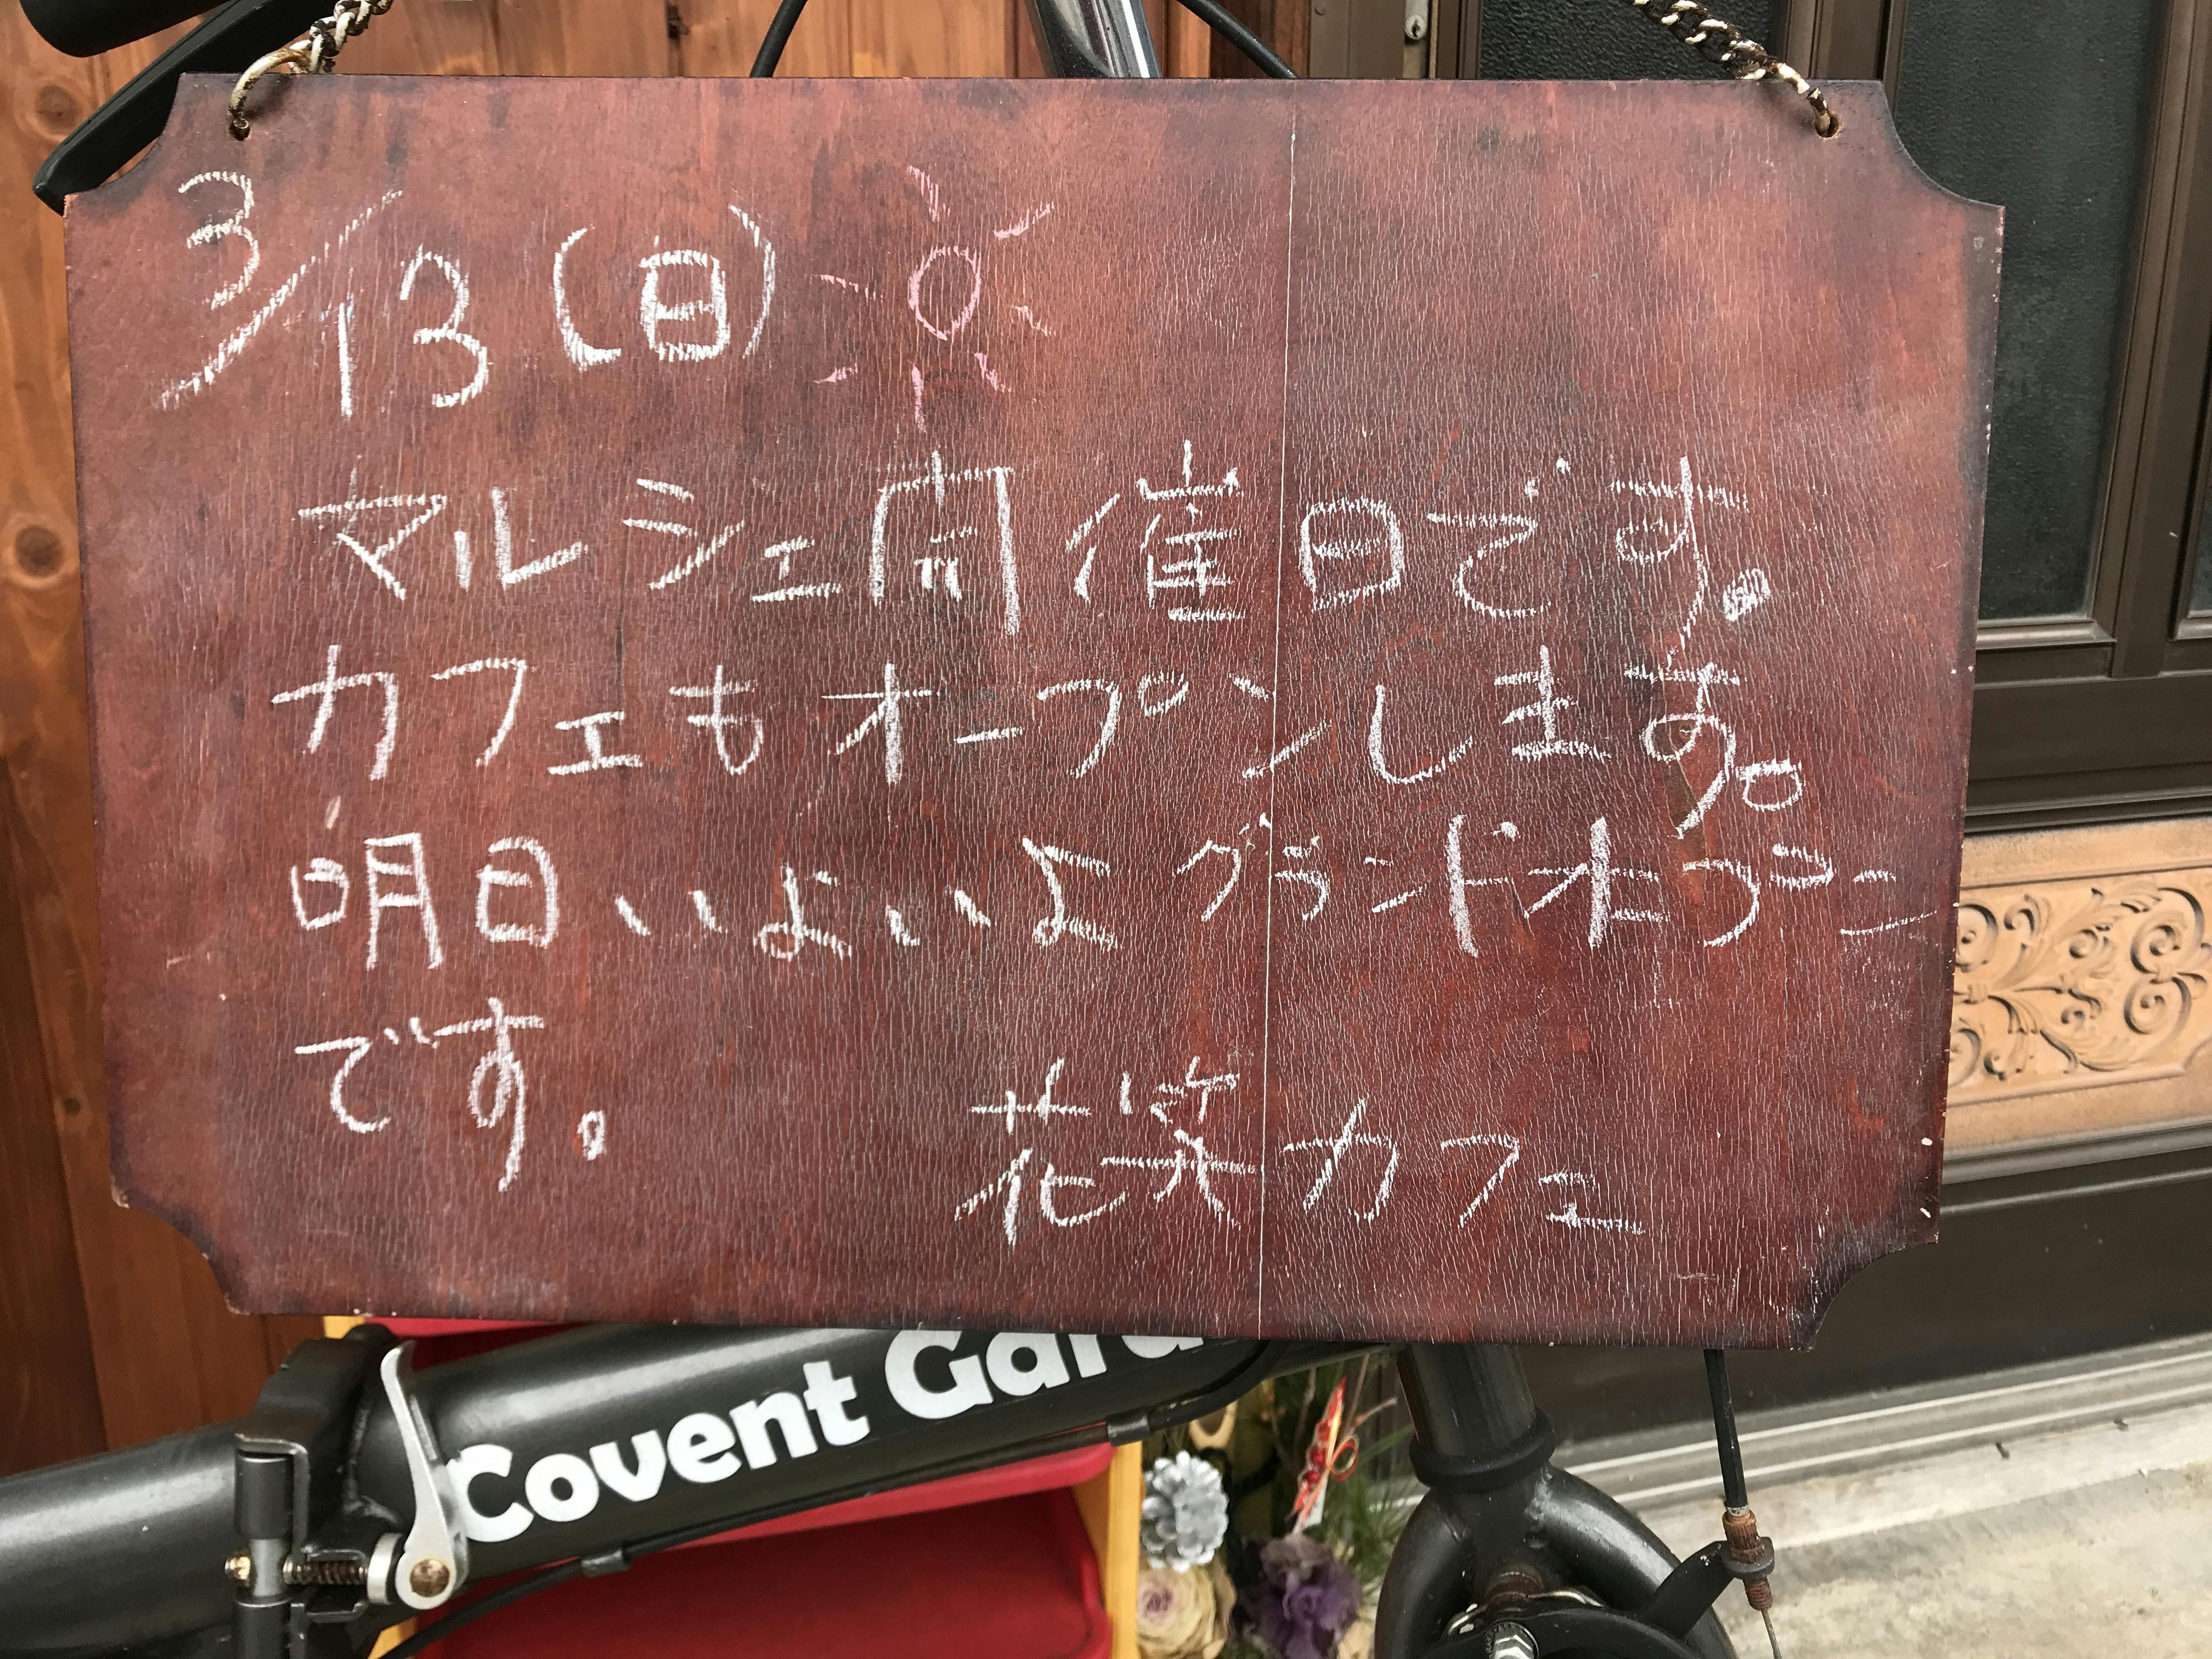 3/13(日)
マルシェ開催日です。
カフェもオープンします。
明日いよいよグランドオープン
です。
花笑カフェ
Covent Gard